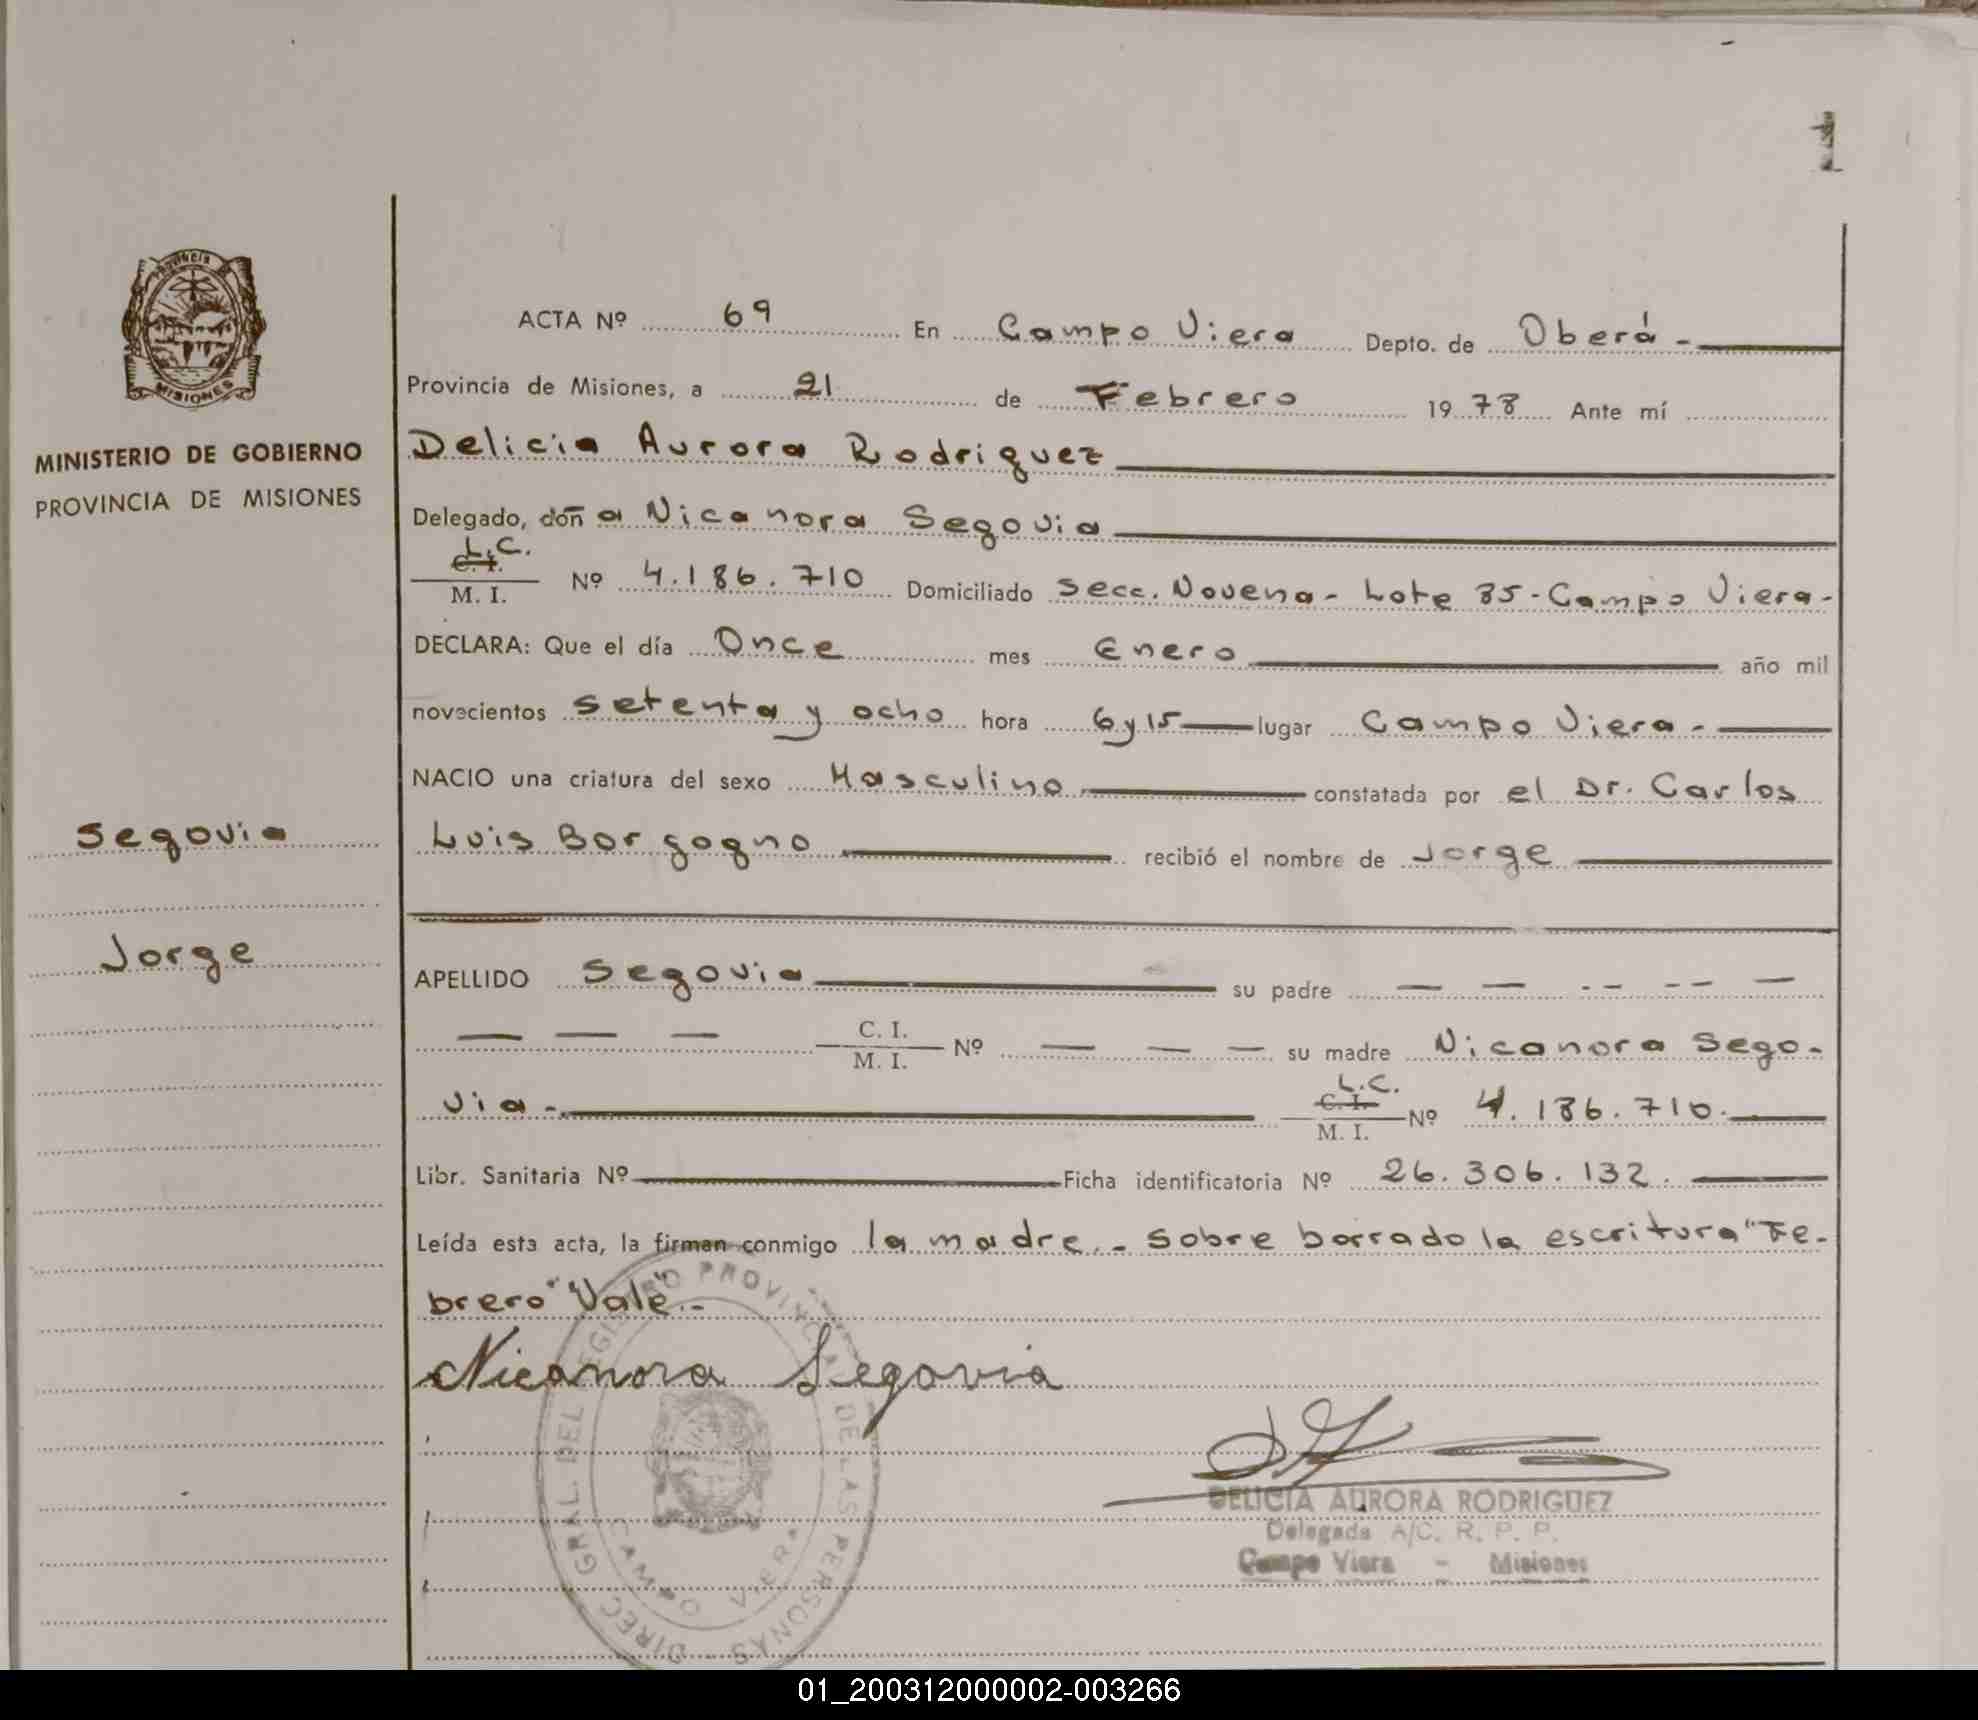 PROVINCIA DE
MISIONES
MINISTERIO DE GOBIERNO
PROVINCIA DE MISIONES
Segovia
Jorge
ACTA Nº 69 En Campo Viera Depto. de Oberá -
Provincia de Misiones, a 21 de Febrero 1978 Ante mí
Delicia Aurora Rodriguez
Delegado, doña Nicanora Segovia
L.C.
C. I.
M. I. Nº 4.186.710 Domiciliado Secc. Novena - Lote 85 - Campo Viera -
DECLARA: Que el día Once mes Enero año mil
novecientos setenta y ocho hora 6 y 15 lugar Campo Viera -
NACIO una criatura del sexo Masculino constatada por el Dr. Carlos
Luis Borgogno recibió el nombre de Jorge
APELLIDO Segovia su padre — — — — —
— — — C. I.
M. I. Nº — — — su madre Nicanora Sego-
via - L.C.
C. I.
M. I. Nº 4.186.710.
Libr. Sanitaria Nº Ficha identificatoria Nº 26.306.132.
Leída esta acta, la firman conmigo la madre. - sobre borrado la escritura "Fe-
brero" "Vale". -
Nicanora Segovia
DIREC. GRAL. DEL REGISTRO PROVINCIAL DE LAS PERSONAS
CAMPO VIERA
DELICIA AURORA RODRIGUEZ
Delegada A/C. R. P. P.
Campo Viera - Misiones
01_200312000002-003266